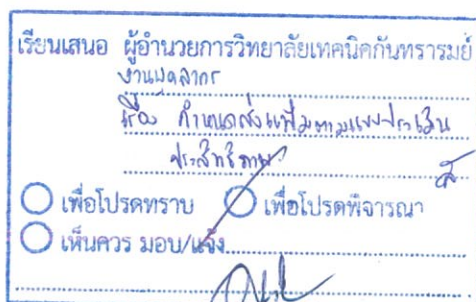 เรียนเสนอ ผู้อำนวยการวิทยาลัยเทคนิคกันทรารมย์
งานบุคลากร
เรื่อง กำหนดส่งแฟ้มตามแบบประเมิน
ประสิทธิภาพ
เพื่อโปรดทราบ เพื่อโปรดพิจารณา
เห็นควร มอบ/แจ้ง